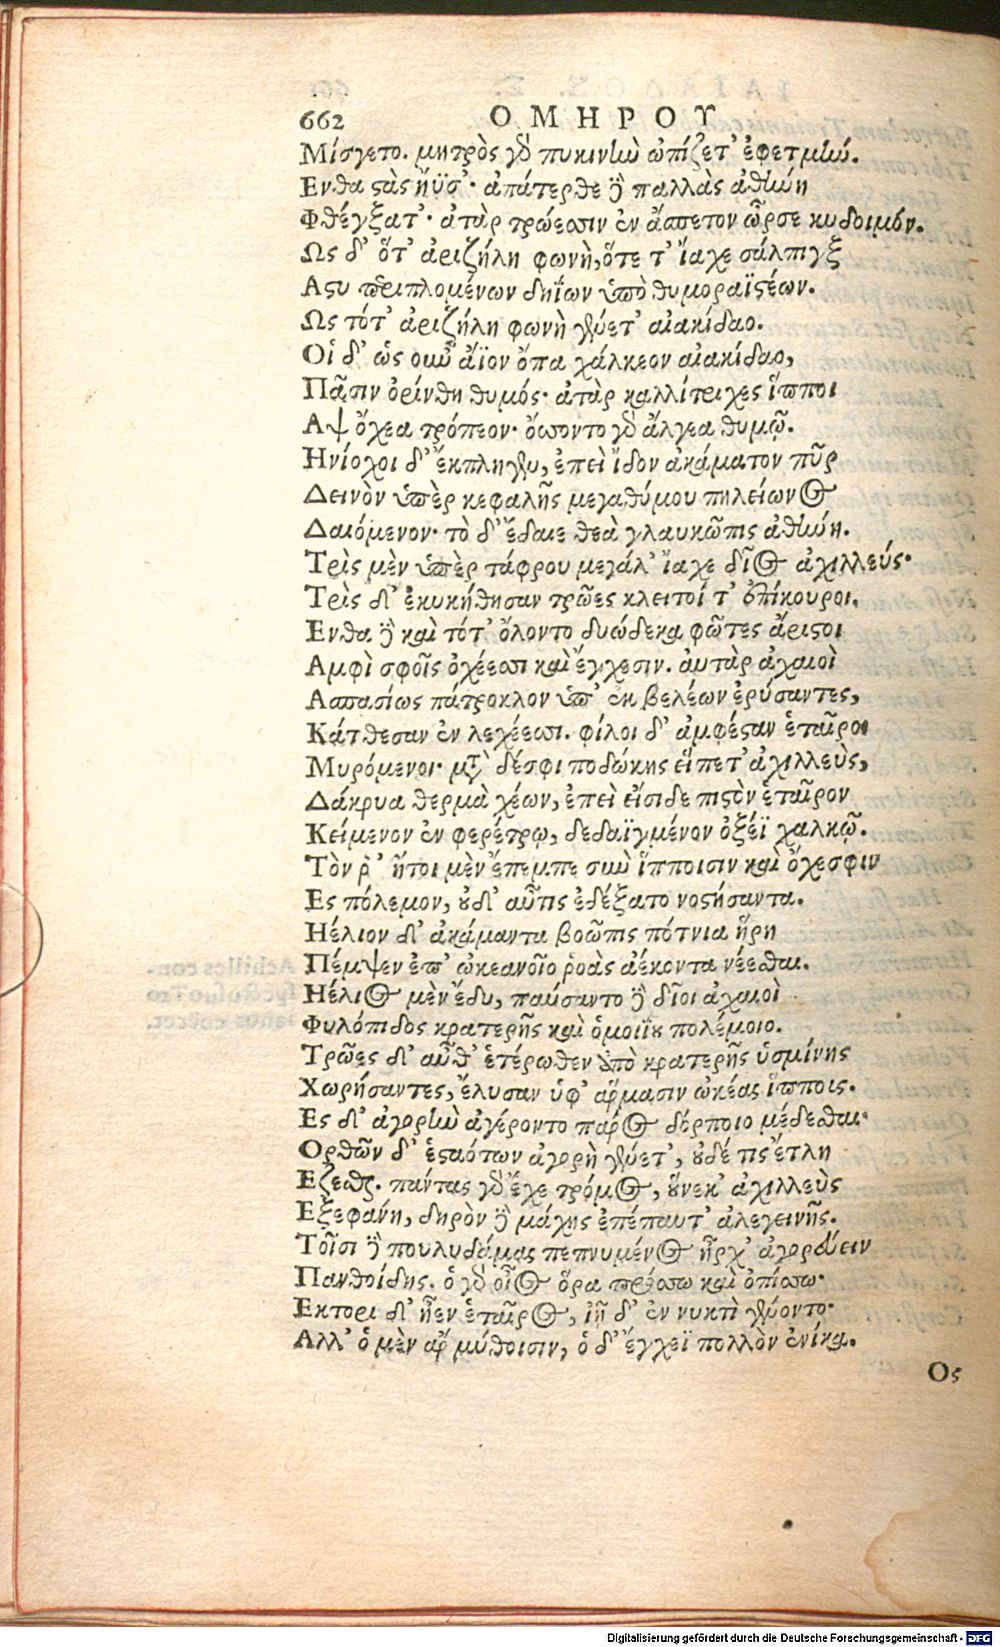 662 ΟΜΗΡΟΥ
Μίσγετο. μητρὸς γὸ πυκινὴν ὠπίζετ' ἐφετμήν.
Ενθα στὰς ἤϋσ'· ἀπάτερθε δὲ παλλὰς ἀθήνη
Φθέγξατ'· ἀτὰρ τρώεσσιν ἐν ἄσπετον ὦρσε κυδοιμόν.
Ως δ' ὅτ' ἀριζήλη φωνὴ, ὅτε τ' ἴαχε σάλπιγξ
Αςυ περιπλομένων δηΐων ὑπὸ θυμοραϊςέων.
Ως τότ' ἀριζήλη φωνὴ γένετ' αἰακίδαο.
Οἱ δ' ὡς οὖν ἄϊον ὄπα χάλκεον αἰακίδαο,
Πᾶσιν ὀρίνθη θυμός· ἀτὰρ καλλίτριχες ἵπποι
Αψ ὄχεα τρόπεον· ὄσσοντο γὸ ἄλγεα θυμῷ.
Ηνίοχοι δ' ἔκπληγεν, ἐπεὶ ἴδον ἀκάματον πῦρ
Δεινὸν ὑπὲρ κεφαλῆς μεγαθύμου πηλείωνος
Δαιόμενον· τὸ δ' ἔδαιε θεὰ γλαυκῶπις ἀθήνη.
Τρὶς μὲν ὑπὲρ τάφρου μεγάλ' ἴαχε δῖος ἀχιλλεύς·
Τρὶς δ' ἐκυκήθησαν τρῶες κλειτοί τ' ἐπίκουροι.
Ενθα δὲ καὶ τότ' ὄλοντο δυώδεκα φῶτες ἄριςοι
Αμφὶ σφοῖς ὀχέεσσι καὶ ἔγχεσιν. αὐτὰρ ἀχαιοὶ
Ασπασίως πάτροκλον ὑπ' ἐκ βελέων ἐρύσαντες,
Κάτθεσαν ἐν λεχέεσσι. φίλοι δ' ἀμφέςαν ἑταῖροι
Μυρόμενοι· μετὰ δέσφι ποδώκης εἵπετ' ἀχιλλεὺς,
Δάκρυα θερμὰ χέων, ἐπεὶ εἴσιδε πιςὸν ἑταῖρον
Κείμενον ἐν φερέτρῳ, δεδαϊγμένον ὀξέϊ χαλκῷ.
Τὸν ῥ' ἤτοι μὲν ἔπεμπε σὺν ἵπποισιν καὶ ὄχεσφιν
Ες πόλεμον, ȣδ' αὖτις ἐδέξατο νοςήσαντα.
Ηέλιον δ' ἀκάμαντα βοῶπις πότνια ἥρη
Πέμψεν ἐπ' ὠκεανοῖο ῥοὰς ἀέκοντα νέεσθαι.
Ηέλιος μὲν ἔδυ, παύσαντο δὲ δῖοι ἀχαιοὶ
Φυλόπιδος κρατερῆς καὶ ὁμοιΐȣ πολέμοιο.
Τρῶες δ' αὖθ' ἑτέρωθεν ἀπὸ κρατερῆς ὑσμίνης
Χωρήσαντες, ἔλυσαν ὑφ' ἅρμασιν ὠκέας ἵπποις.
Ες δ' ἀγορὴν ἀγέροντο πάρος δόρποιο μέδεσθαι·
Ορθῶν δ' ἑςαότων ἀγορὴ γένετ', ȣδέ τις ἔτλη
Εζεσθαι. πάντας γὸ ἔχε τρόμος, ȣ̔́νεκ' ἀχιλλεὺς
Εξεφάνη, δηρὸν δὲ μάχης ἐπέπαυτ' ἀλεγεινῆς.
Τοῖσι δὲ πουλυδάμας πεπνυμένος ἦρχ' ἀγορεύειν
Πανθοίδης. ὁ γὸ οἶος ὅρα πρόσσω καὶ ὀπίσσω·
Εκτορι δ' ἦεν ἑταῖρος, ἰῇ δ' ἐν νυκτὶ γένοντο·
Αλλ' ὁ μὲν ἂρ μύθοισιν, ὁ δ' ἔγχεϊ πολλὸν ἐνίκα.
Ος
Digitalisierung gefördert durch die Deutsche Forschungsgemeinschaft - DFG